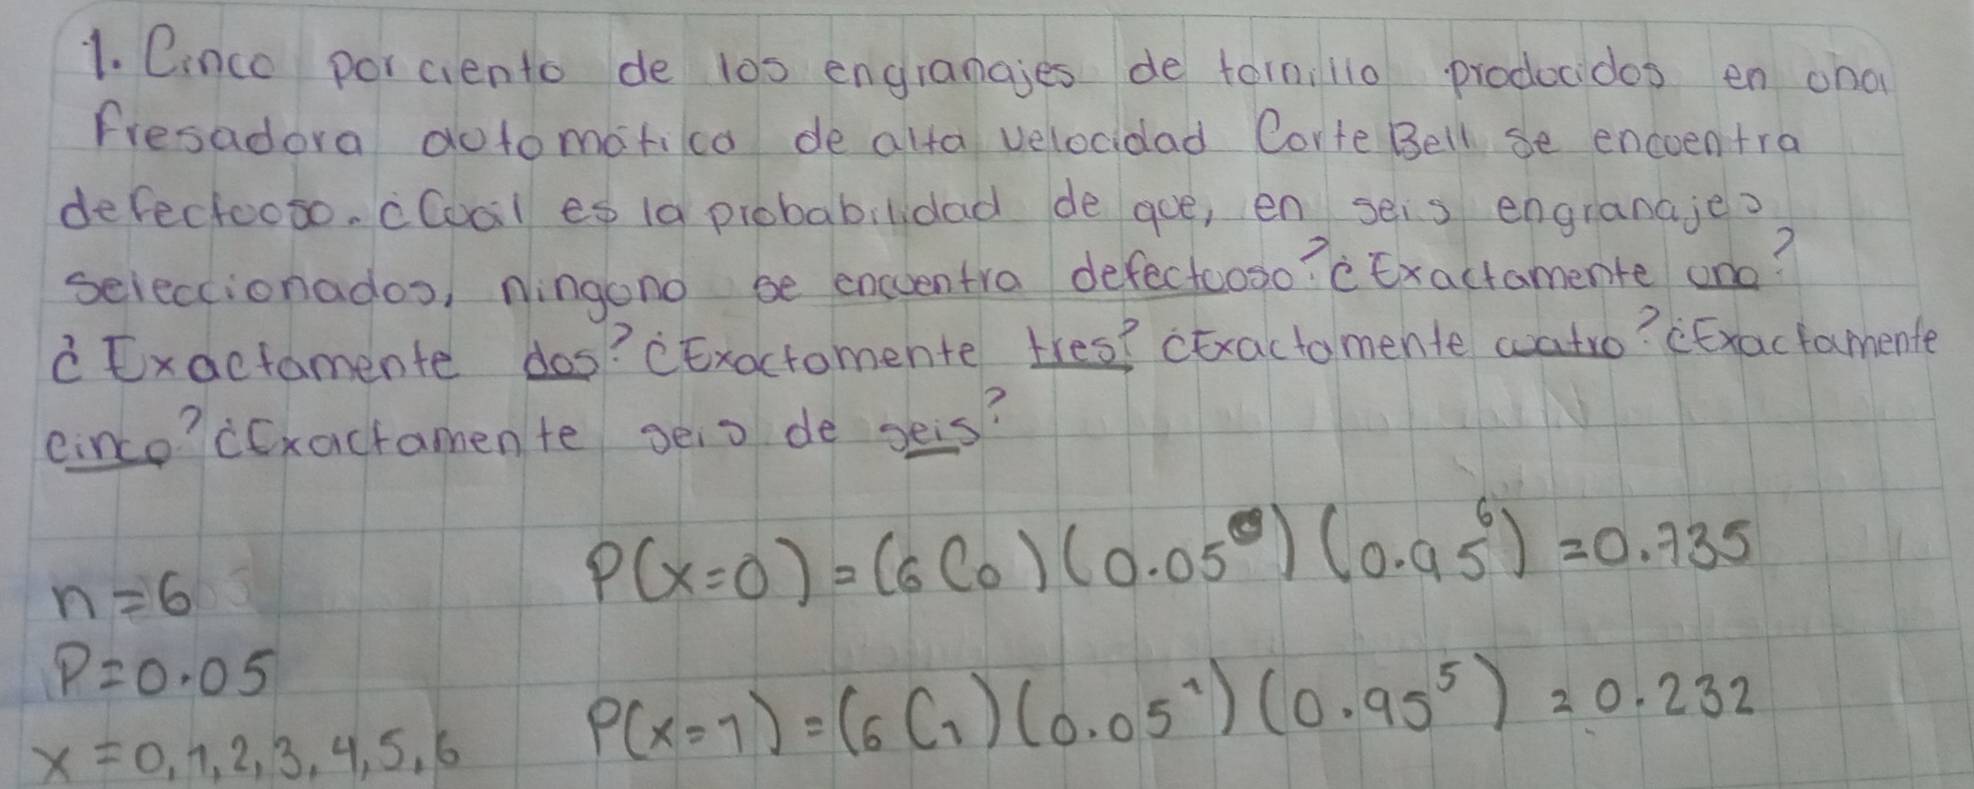 1. Cinco por ciento de los engranajes de tornillo producidos en una
fresadora automática de alta velocidad Carte Bell se encuentra
defectuoso. ¿Cuál es la probabilidad de que, en seis engranajes
seleccionados, ninguno se encuentra defectuoso? ¿Exactamente uno?
¿Exactamente dos? ¿Exactamente tres? ¿Exactamente cuatro? ¿Exactamente
cinco? ¿Exactamente seis de seis?
n=6 P(x=0)=(6C0)(0.05⁰)(0.95⁶)=0.735
P=0.05
x=0,1,2,3,4,5,6 P(x=1)=(6C1)(0.05¹)(0.95⁵)=0.232